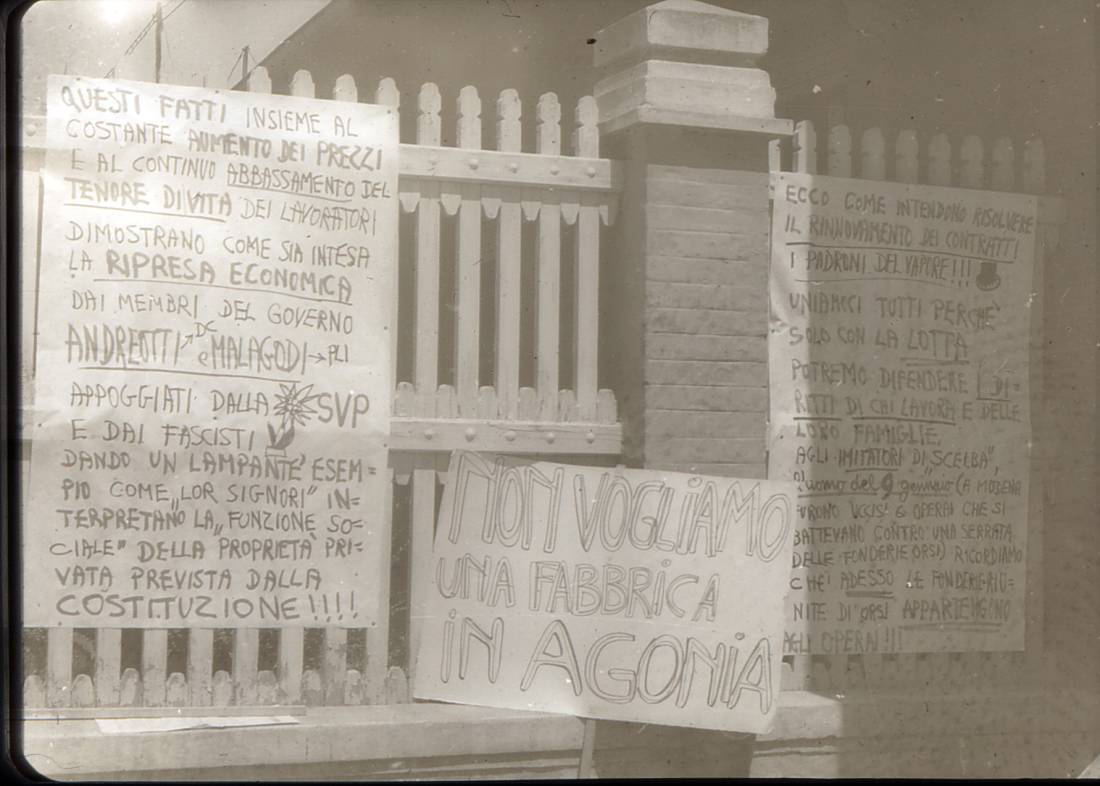 QUESTI FATTI INSIEME AL
COSTANTE AUMENTO DEI PREZZI
E AL CONTINUO ABBASSAMENTO DEL
TENORE DI VITA DEI LAVORATORI
DIMOSTRANO COME SIA INTESA
LA RIPRESA ECONOMICA
DAI MEMBRI DEL GOVERNO
ANDREOTTI → DC e MALAGODI → PLI
APPOGGIATI DALLA SVP
E DAI FASCISTI
DANDO UN LAMPANTE ESEM=
PIO COME „LOR SIGNORI" IN=
TERPRETANO LA „FUNZIONE SO=
CIALE" DELLA PROPRIETÀ PRI=
VATA PREVISTA DALLA
COSTITUZIONE!!!!
NON VOGLIAMO
UNA FABBRICA
IN AGONIA
ECCO COME INTENDONO RISOLVERE
IL RINNOVAMENTO DEI CONTRATTI
I PADRONI DEL VAPORE!!!
UNIAMCI TUTTI PERCHÈ
SOLO CON LA LOTTA
POTREMO DIFENDERE I DI=
RITTI DI CHI LAVORA E DELLE
LORO FAMIGLIE.
AGLI IMITATORI DI „SCELBA",
l'uomo del 9 gennaio (A MODENA
FURONO UCCISI 6 OPERAI CHE SI
BATTEVANO CONTRO UNA SERRATA
DELLE FONDERIE ORSI) RICORDIAMO
CHE ADESSO LE FONDERIE RIU=
NITE DI ORSI APPARTENGONO
AGLI OPERAI!!!